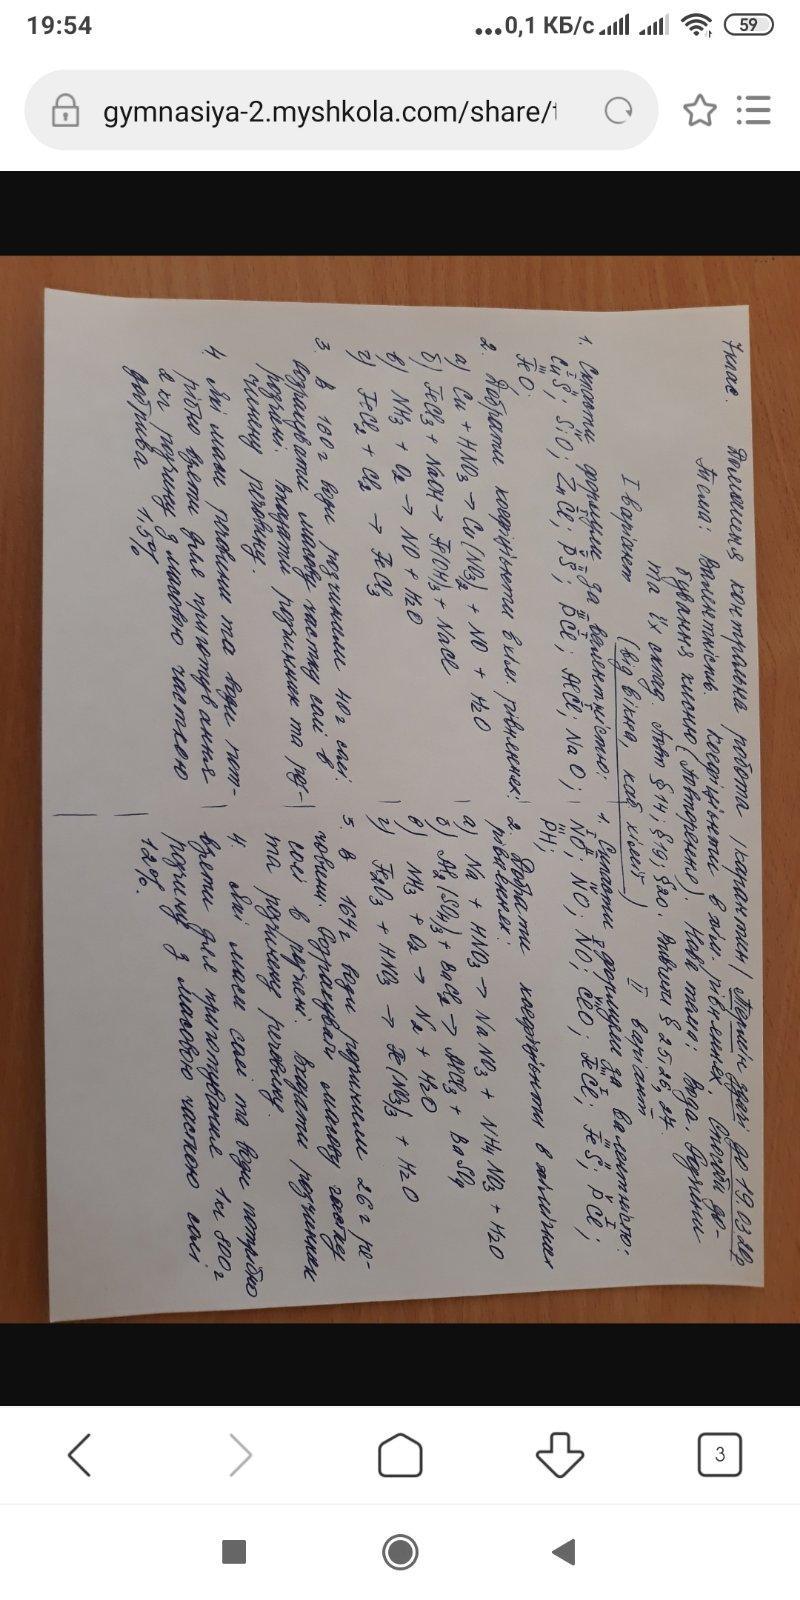 19:54
...0,1 КБ/с
59
gymnasiya-2.myshkola.com/share/t
7 клас. Домашня контрольна робота (карантин) Термін здачі до 19.03.20р
Тема: Валентність. Коефіцієнти в хім. рівняннях. Способи до-
бування кисню (повторення). Нова тема: Вода. Розчини
та їх склад. Повт § 14, § 19, § 20. Вивчити § 25, 26, 27.
I варіант (від вікна, каб хімії) II варіант
1. Скласти формули за валентністю:
I II IV II I V II III I
CuS; SiO; ZnCl; PS; PCl; AlCl; NaO;
III
FeO.
2. Дібрати коефіцієнти в хім. рівняннях:
а) Cu + HNO3 → Cu(NO3)2 + NO + H2O
б) FeCl3 + NaOH → Fe(OH)3 + NaCl
в) NH3 + O2 → NO + H2O
г) FeCl2 + Cl2 → FeCl3
3. В 180 г води розчинили 40 г солі.
Розрахувати масову частку солі в
розчині. Вказати розчинник та роз-
чинену речовину.
4. Які маси речовини та води пот-
рібно взяти для приготування
2 кг розчину з масовою часткою
добрива 1,5%
1. Скласти формули за валентністю:
NO; NO; NO; ClO; FeCl; FeS; PCl;
PH;
2. Добрати коефіцієнти в хімічних
рівняннях:
а) Na + HNO3 → NaNO3 + NH4NO3 + H2O
б) Al2(SO4)3 + BaCl2 → AlCl3 + BaSO4
в) NH3 + O2 → N2 + H2O
г) Fe2O3 + HNO3 → Fe(NO3)3 + H2O
3. В 164 г води розчинили 26 г ре-
човини. Розрахувати масову частку
солі в розчині. Вказати розчинник
та розчинену речовину.
4. Які маси солі та води потрібно
взяти для приготування 1 кг 800 г
розчину з масовою часткою солі
12%.
3